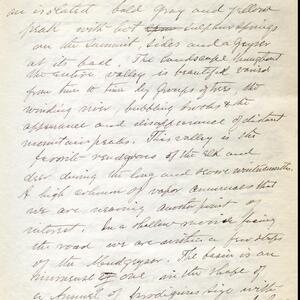 an isolated bald gray and yellow
peak with hot sulphur springs
on the summit, sides and a Geyser
at its base. The landscape throughout
the entire valley is beautiful varied
from time to time by groups of trees, the
winding river, bubbling brooks & the
appearance and disappearance of distant
mountain peaks. This valley is the
favorite rendezvous of the Elk and
deer during the long and severe winter months.
A high column of vapor announces that
we are nearing another point of
interest. In a shallow ravine facing
the road we are within a few steps
of the Mud geyser. The basin is an
immense one, in the shape of
a funnel of prodigious size with